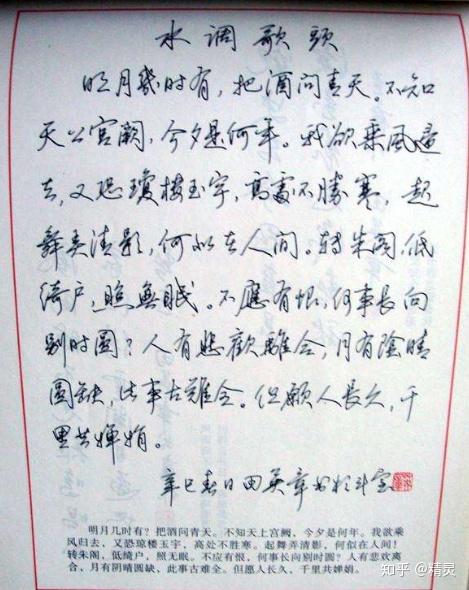 水调歌頭
明月幾时有，把酒问青天。不知
天上宫阙，今夕是何年。我欲乘风归
去，又恐瓊樓玉宇，高處不勝寒，起
舞弄清影，何似在人间。转朱阁，低
綺户，照無眠。不應有恨，何事長向
别时圆？人有悲歡離合，月有陰晴
圆缺，此事古難全。但願人長久，千
里共嬋娟。
辛巳春日田英章书於斗室
明月几时有？把酒问青天。不知天上宫阙，今夕是何年。我欲乘
风归去，又恐琼楼玉宇，高处不胜寒。起舞弄清影，何似在人间！
转朱阁，低绮户，照无眠。不应有恨，何事长向别时圆？人有悲欢离
合，月有阴晴圆缺，此事古难全。但愿人长久，千里共婵娟。
知乎 @精灵